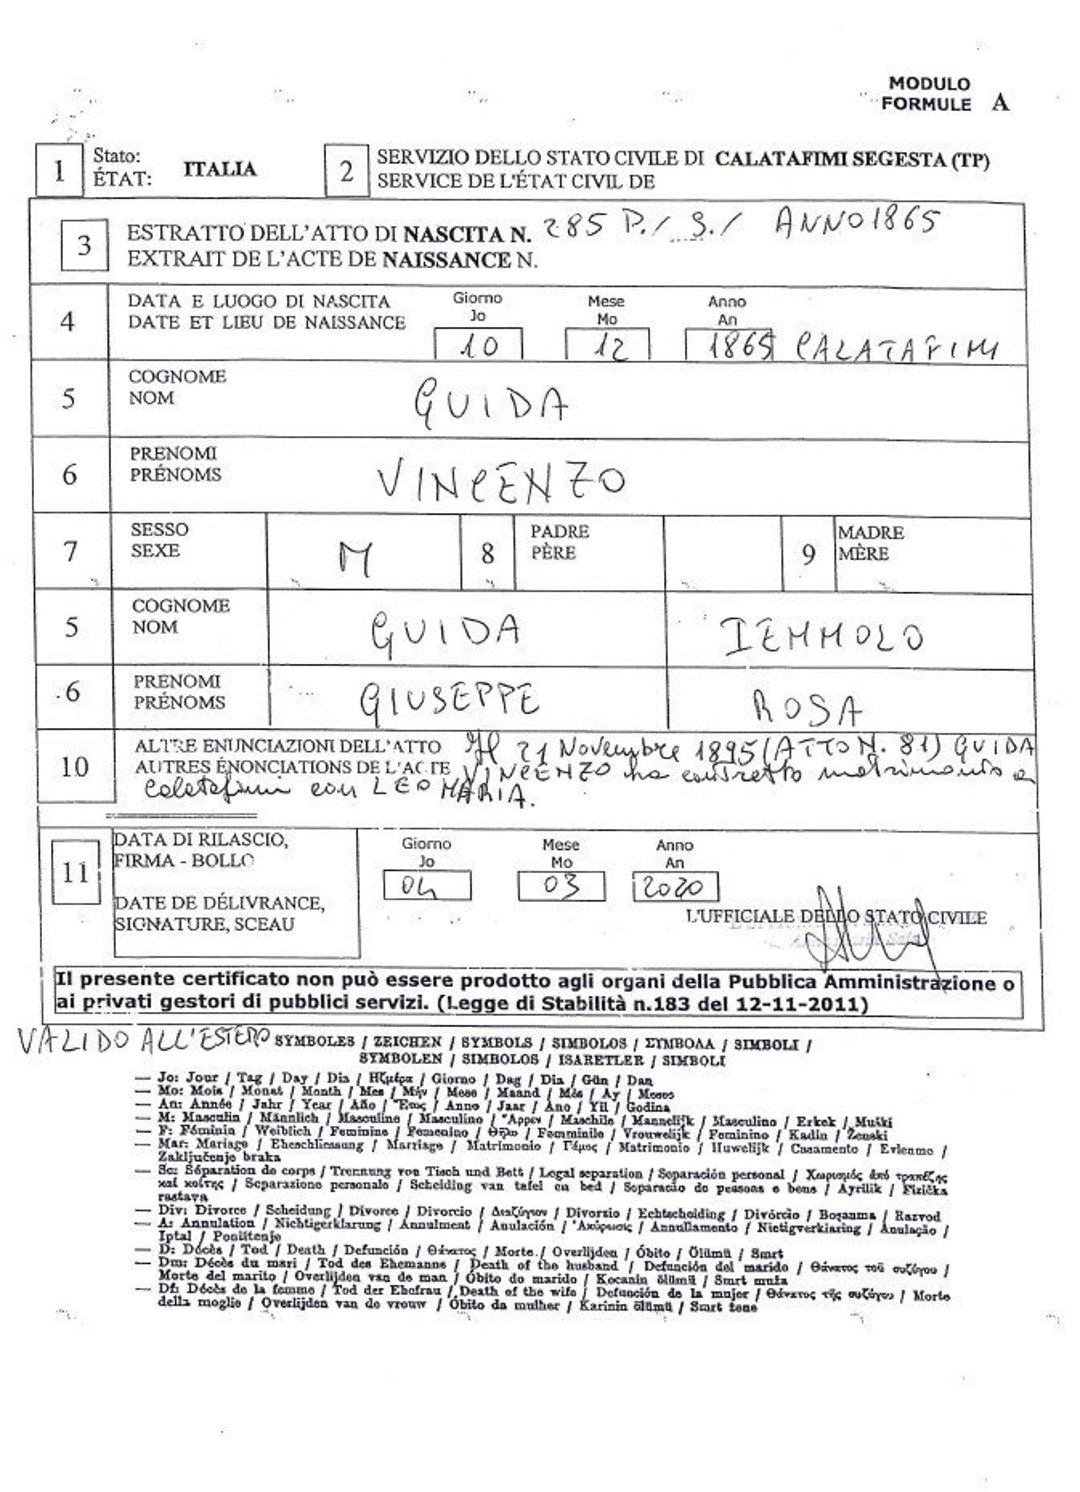 MODULO
FORMULE A
1 Stato: ITALIA 2 SERVIZIO DELLO STATO CIVILE DI CALATAFIMI SEGESTA (TP)
ÉTAT: SERVICE DE L'ÉTAT CIVIL DE
3 ESTRATTO DELL'ATTO DI NASCITA N. 285 P./ S./ ANNO 1865
EXTRAIT DE L'ACTE DE NAISSANCE N.
4 DATA E LUOGO DI NASCITA Giorno Mese Anno
DATE ET LIEU DE NAISSANCE Jo Mo An
10 12 1865 CALATAFIMI
5 COGNOME
NOM GUIDA
6 PRENOMI
PRÉNOMS VINCENZO
7 SESSO M 8 PADRE 9 MADRE
SEXE PÈRE MÈRE
5 COGNOME
NOM GUIDA IEMMOLO
6 PRENOMI
PRÉNOMS GIUSEPPE ROSA
10 ALTRE ENUNCIAZIONI DELL'ATTO Il 21 Novembre 1895 (ATTO N. 81) GUIDA
AUTRES ÉNONCIATIONS DE L'ACTE VINCENZO ha contratto matrimonio a
Calatafimi con LEO MARIA.
11 DATA DI RILASCIO, Giorno Mese Anno
FIRMA - BOLLO Jo Mo An
04 03 2020
DATE DE DÉLIVRANCE,
SIGNATURE, SCEAU L'UFFICIALE DELLO STATO CIVILE
Il presente certificato non può essere prodotto agli organi della Pubblica Amministrazione o
ai privati gestori di pubblici servizi. (Legge di Stabilità n.183 del 12-11-2011)
VALIDO ALL'ESTERO SYMBOLES / ZEICHEN / SYMBOLS / SIMBOLOS / ΣΥΜΒΟΛΑ / SIMBOLI /
SYMBOLEN / SIMBOLOS / ISARETLER / SIMBOLI
— Jo: Jour / Tag / Day / Dia / Ημέρα / Giorno / Dag / Dia / Gün / Dan
— Mo: Mois / Monat / Month / Mes / Μήν / Mese / Maand / Mês / Ay / Mesec
— An: Année / Jahr / Year / Año / Έτος / Anno / Jaar / Ano / Yil / Godina
— M: Masculin / Männlich / Masculine / Masculino / Άρρεν / Maschile / Mannelijk / Masculino / Erkek / Muški
— F: Féminin / Weiblich / Feminine / Femenino / Θήλυ / Femminile / Vrouwelijk / Feminino / Kadin / Ženski
— Mar: Mariage / Eheschliessung / Marriage / Matrimonio / Γάμος / Matrimonio / Huwelijk / Casamento / Evlenme /
Zaključenje braka
— Sc: Séparation de corps / Trennung von Tisch und Bett / Legal separation / Separación personal / Χωρισμός από τραπέζης
και κοίτης / Separazione personale / Scheiding van tafel en bed / Separação de pessoas e bens / Ayrilik / Fizička
rastava
— Div: Divorce / Scheidung / Divorce / Divorcio / Διαζύγιον / Divorzio / Echtscheiding / Divórcio / Boşanma / Razvod
— A: Annulation / Nichtigerklärung / Annulment / Anulación / Ἀκύρωσις / Annullamento / Nietigverklaring / Anulação /
Iptal / Poništenje
— D: Décès / Tod / Death / Defunción / Θάνατος / Morte / Overlijden / Óbito / Ölümü / Smrt
— Dm: Décès du mari / Tod des Ehemanns / Death of the husband / Defunción del marido / Θάνατος τοῦ συζύγου /
Morte del marito / Overlijden van de man / Óbito do marido / Kocanin ölümü / Smrt muža
— Df: Décès de la femme / Tod der Ehefrau / Death of the wife / Defunción de la mujer / Θάνατος τῆς συζύγου / Morte
della moglie / Overlijden van de vrouw / Óbito da mulher / Karinin ölümü / Smrt žene